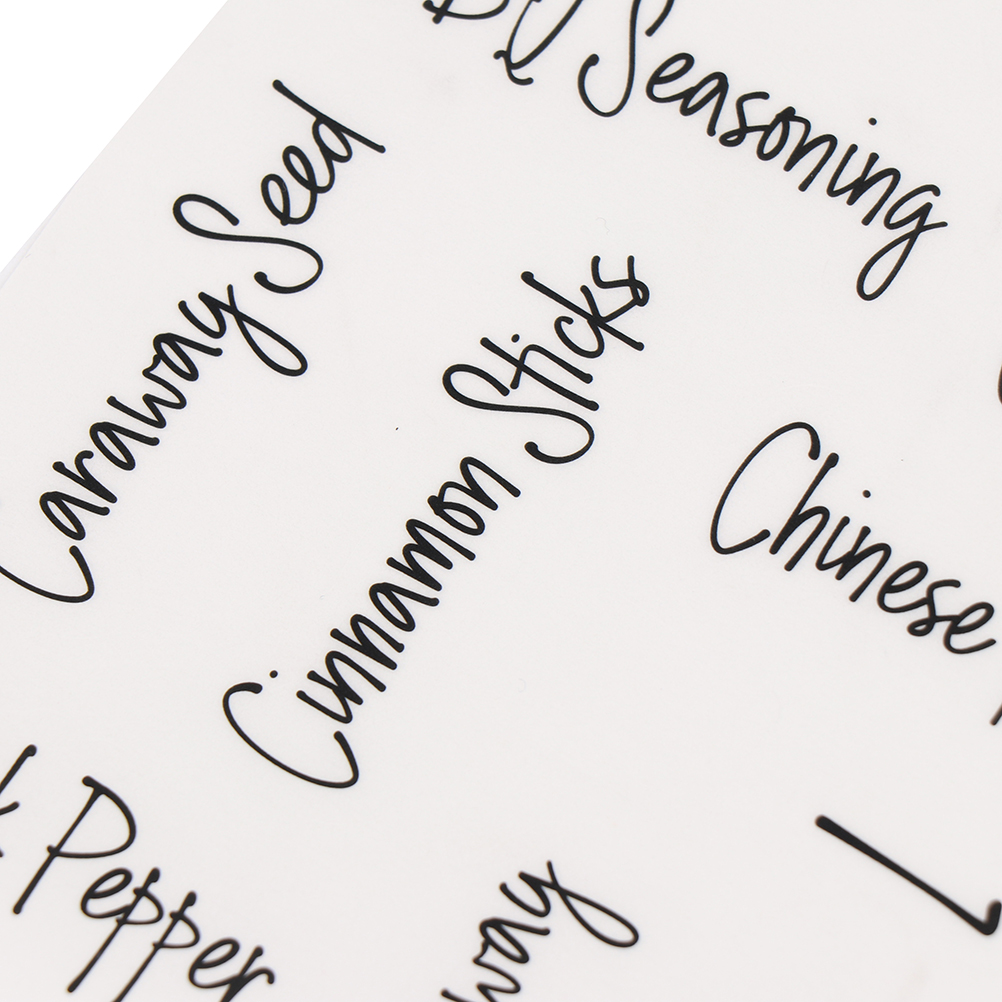 Seasoning
Caraway Seed
Cinnamon Sticks
Chinese
Pepper
way